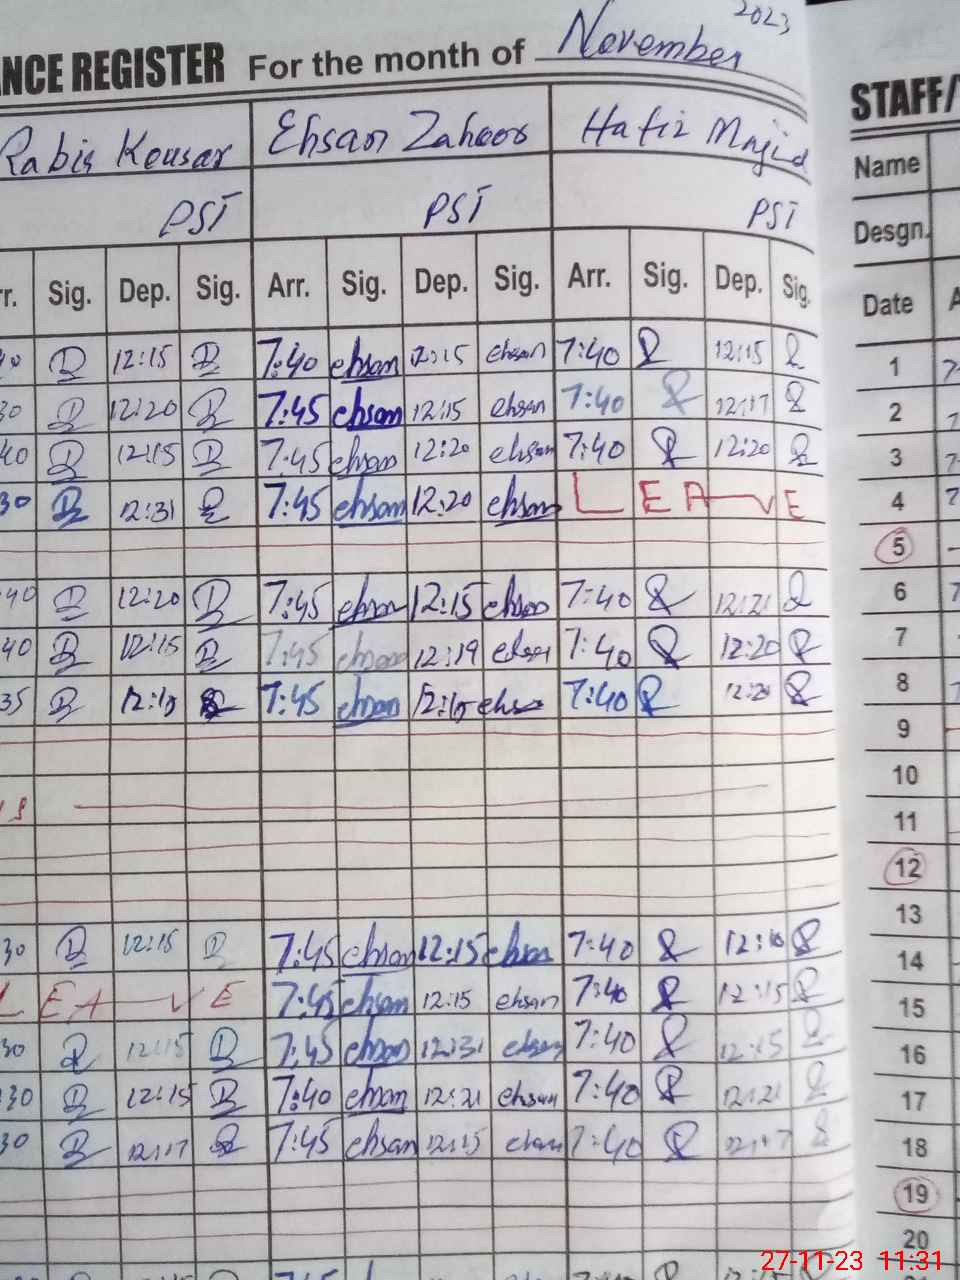 2023
NCE REGISTER For the month of November
STAFF/
Rabia Kousar Ehsan Zahoor Hafiz Majid
Name
PST PST PST
Desgn.
r. Sig. Dep. Sig. Arr. Sig. Dep. Sig. Arr. Sig. Dep. Sig.
Date A
40 12:15 7:40 ehsan 12:15 ehsan 7:40 12:15
1 7
30 12:20 7:45 ehsan 12:15 ehsan 7:40 12:17
2 7
40 12:15 7:45 ehsan 12:20 ehsan 7:40 12:20
3 7
30 12:31 7:45 ehsan 12:20 ehsan LEAVE
4 7
5
40 12:20 7:45 ehsan 12:15 ehsan 7:40 12:21
6 7
40 12:15 7:45 ehsan 12:19 ehsan 7:40 12:20
7
35 7:45 ehsan ehsan 7:40
8 7
9
10
11
12
13
30 12:15 7:45 ehsan 12:15 ehsan 7:40
14
LEAVE 7:45 ehsan 12:15 ehsan 7:40 12:15
15
30 12:15 7:45 ehsan 12:31 ehsan 7:40 12:15
16
30 12:15 7:40 ehsan 12:21 ehsan 7:40 12:21
17
30 12:17 7:45 ehsan 12:15 ehsan 7:40 12:17
18
19
20
27-11-23 11:31